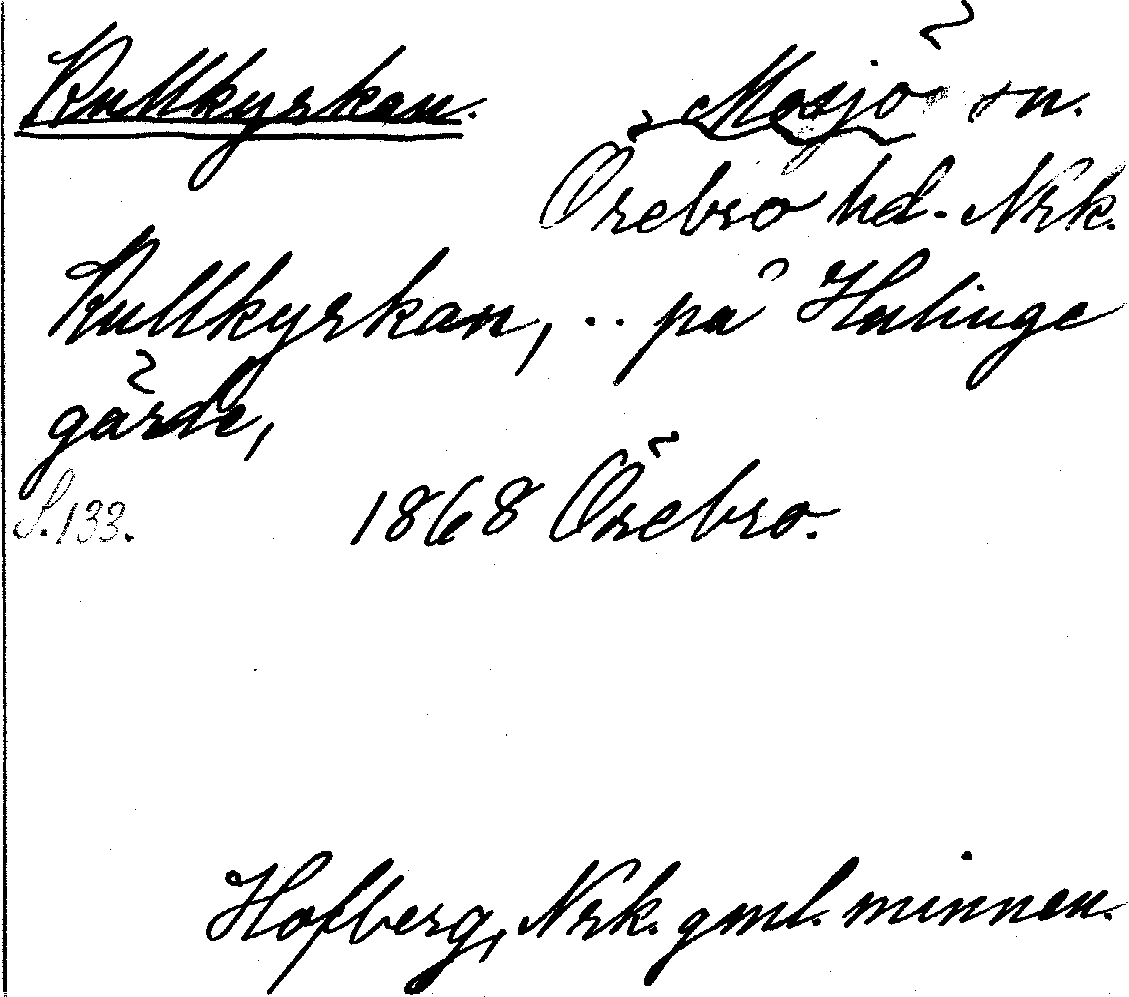 Kullkyrkan. Mosjö sn.
Örebro hd. Nrk.
Kullkyrkan, .. på Hulinge
gärde,
S. 133. 1868 Örebro.
Hofberg, Nrk. gml. minnen.